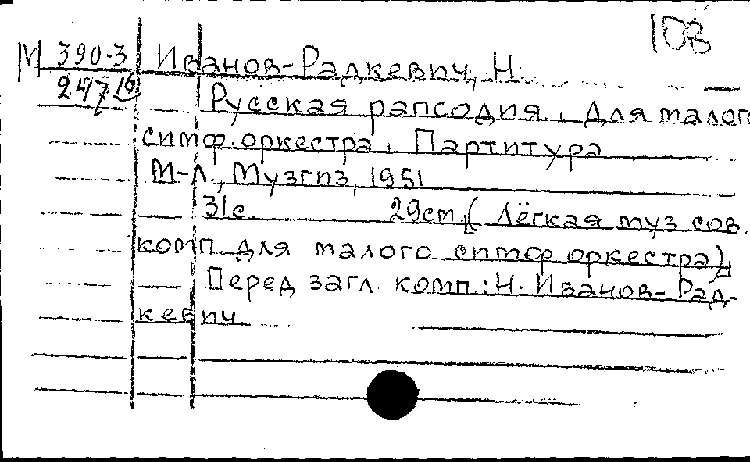 108
М 390-3 Иванов-Радкевич, Н.
247 Русская рапсодия. Для малого
симф. оркестра. Партитура
М-Л, Музгиз, 1951
31с. 29см. (Лёгкая муз сов.
комп. для малого симф оркестра)
Перед загл. комп: Н. Иванов-Рад-
кевич